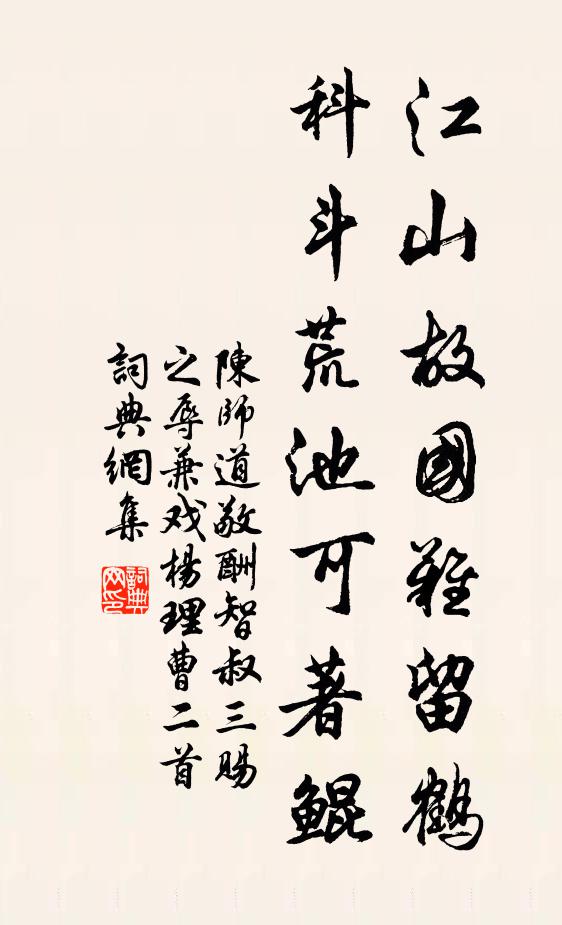 江山故國難留鶴
科斗荒池可著鯤
陳師道敬酬智叔三賜
之辱兼戏楊理曹二首
詞典網集
詞典
网印